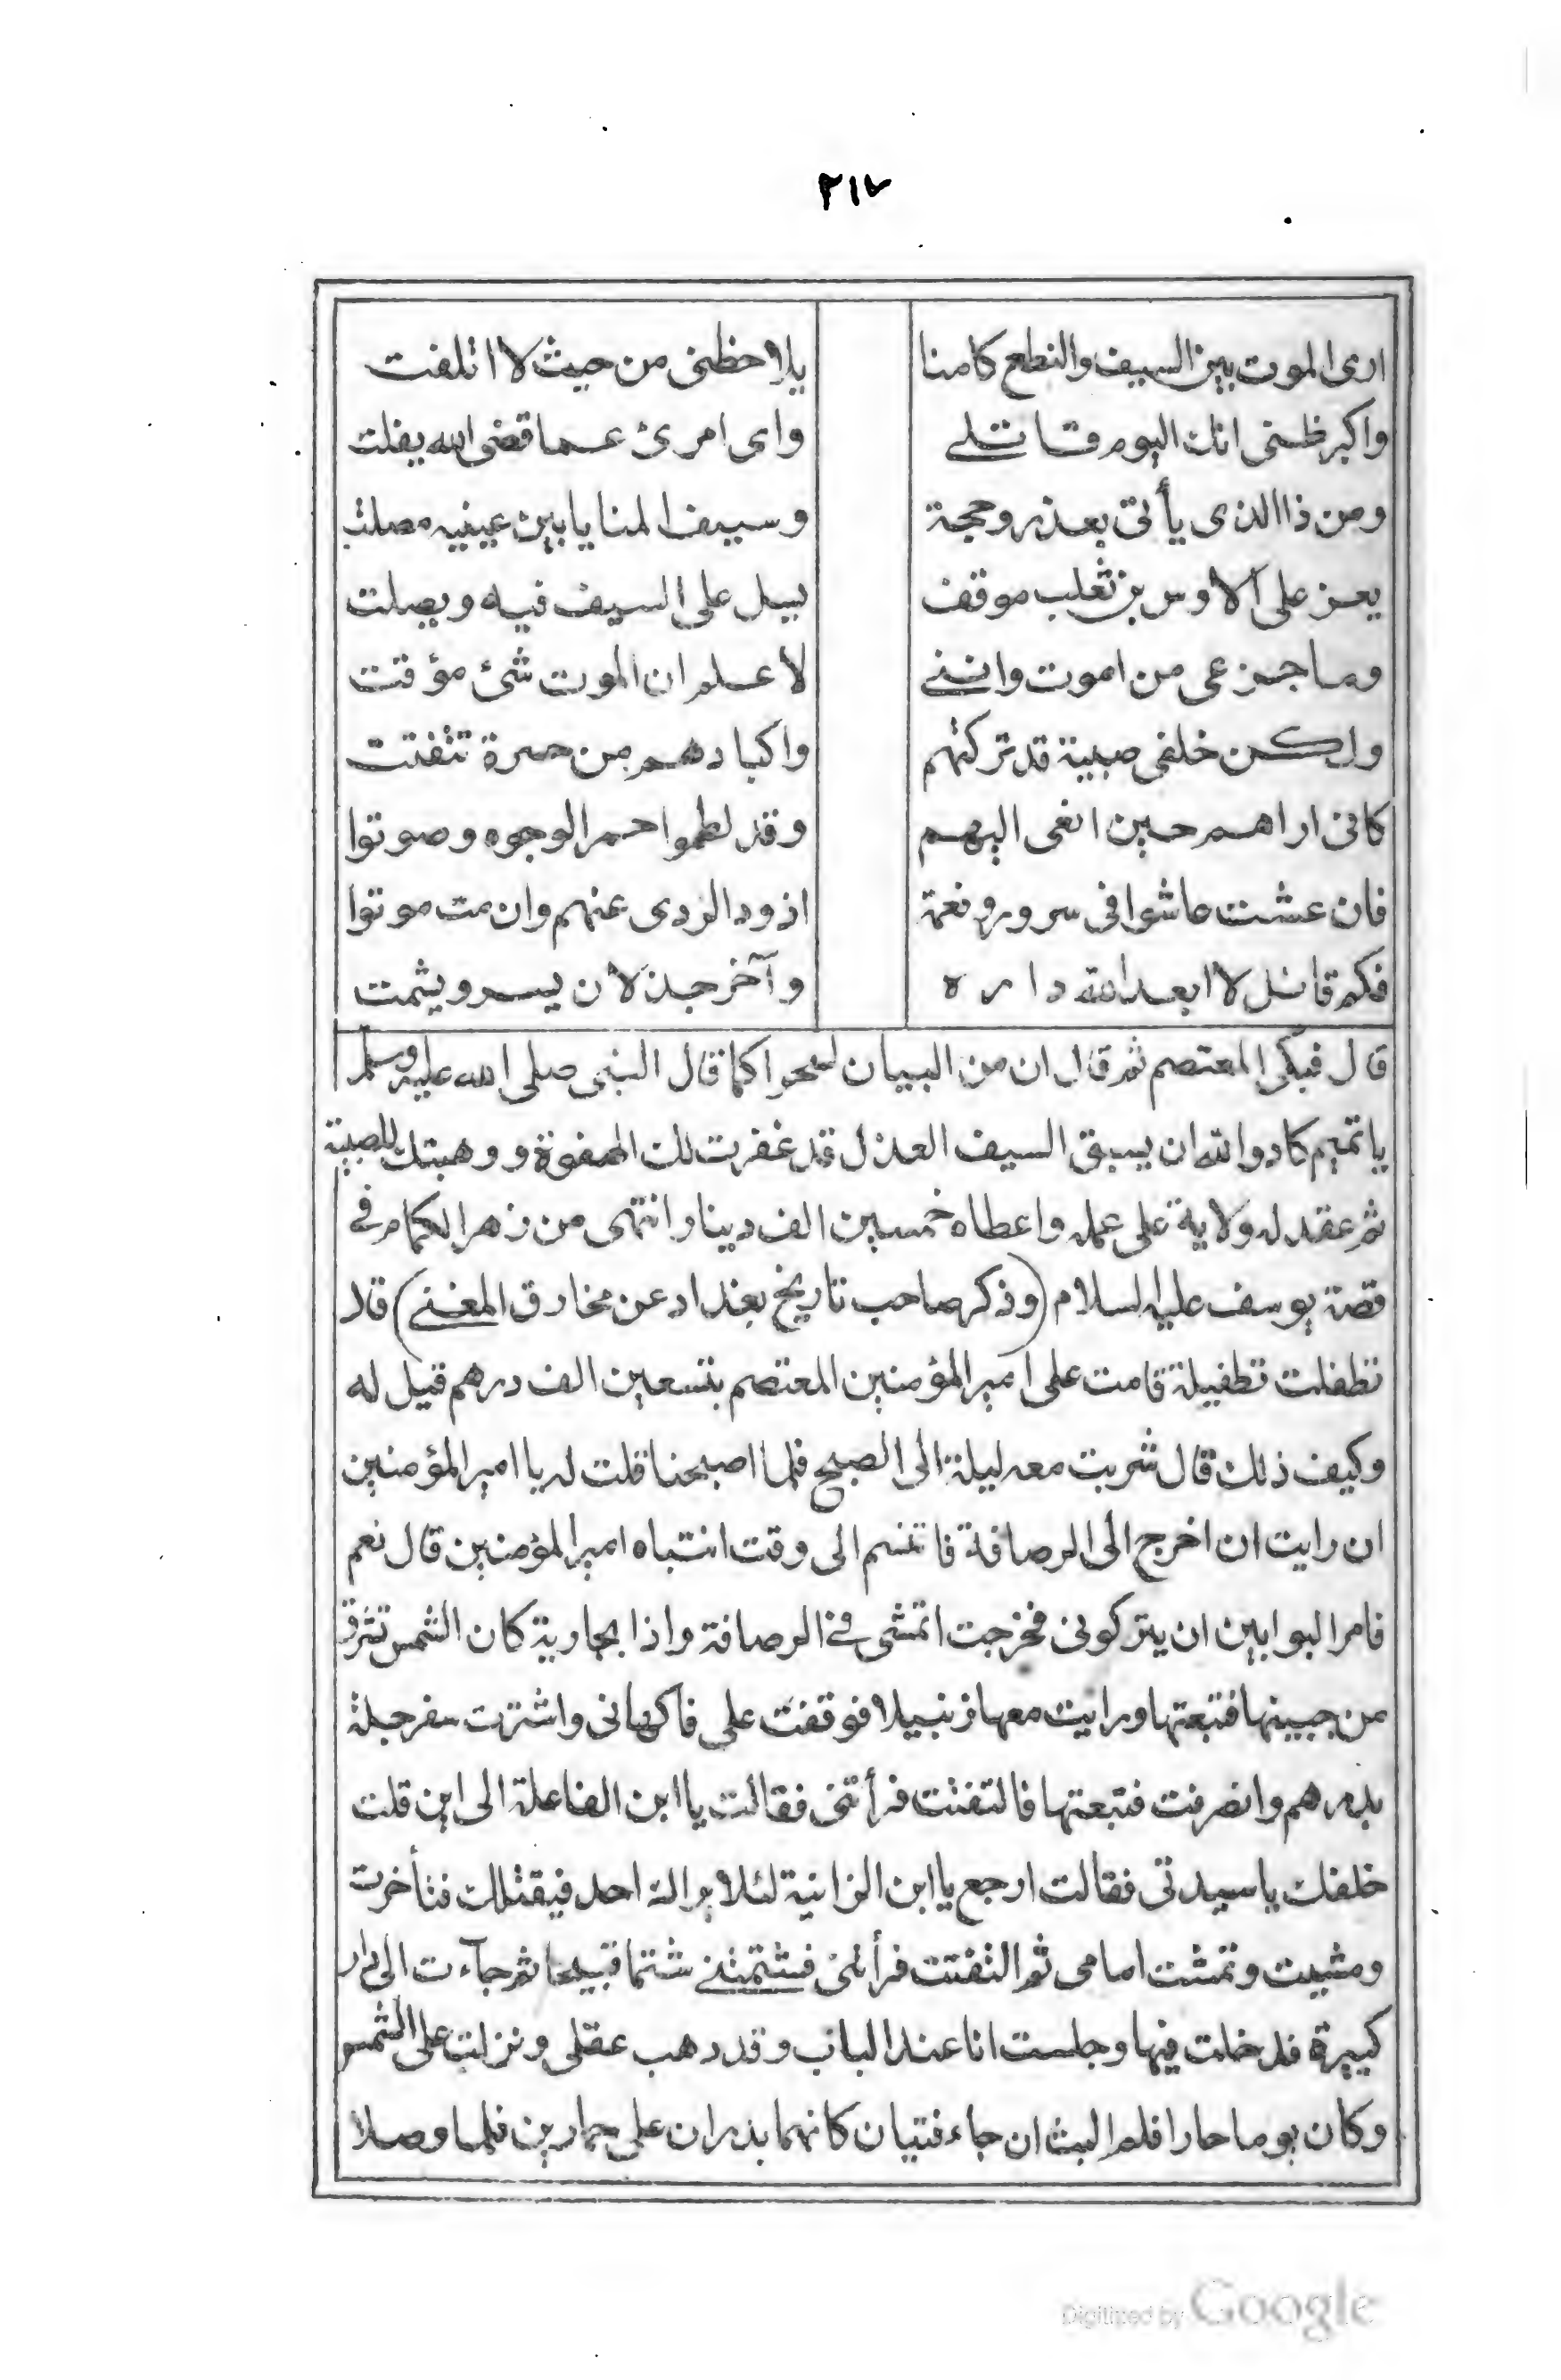 ٢١٧
ارى الموت بين السيف والنطع كامنا يلاحظنى من حيث لا اتلفت
واكبر ظنى انك اليوم قاتلى واى امرئ عما قضى الله يفلت
ومن ذا الذى يأتى بعذر وحجة وسيف المنايا بين عينيه مصلت
يعز على الاوس بن ثعلب موقف يسل على السيف فيه ويصلت
وما جزعى من اموت واننى لاعلم ان الموت شئ مؤقت
ولكن خلفى صبية قد تركتهم واكبادهم من حسرة تتفتت
كانى اراهم حين انعى اليهم وقد لطموا حمر الوجوه وصوتوا
فان عشت عاشوا فى سرور ونعمة اذود الردى عنهم وان مت موتوا
فكم قائل لا ابعد الله داره وآخر جذلان يسر ويشمت
قال فبكى المعتصم ثم قال ان من البيان لسحرا كما قال النبى صلى الله عليه وسلم
يا تميم كاد والله ان يسبق السيف العذل قد غفرت لك الهفوة ووهبتك للصبية
ثم عقد له ولاية على عمله واعطاه خمسين الف دينار انتهى من زهر الكمام فى
قصة يوسف عليه السلام (وذكر صاحب تاريخ بغداد عن مخارق المغنى) قال
تطفلت تطفيلة قامت على امير المؤمنين المعتصم بتسعين الف درهم قيل له
وكيف ذلك قال شربت معه ليلة الى الصبح فلما اصبحنا قلت له يا امير المؤمنين
ان رايت ان اخرج الى الرصافة فاتنسم الى وقت انتباه امير المؤمنين قال نعم
فامر البوابين ان يتركونى فخرجت اتمشى فى الرصافة واذا بجارية كان الشمس تشرق
من جبينها فتبعتها ورايت معها زنبيلا فوقفت على فاكهانى واشترت سفرجلة
بدرهم وانصرفت فتبعتها فالتفتت فرأتنى فقالت يا ابن الفاعلة الى اين قلت
خلفك يا سيدتى فقالت ارجع يا ابن الزانية لئلا يراك احد فيقتلك فتأخرت
ومشيت وتمشت امامى ثم التفتت فرأتنى فشتمتنى شتما قبيحا ثم جآءت الى دار
كبيرة فدخلت فيها وجلست انا عند الباب وقد ذهب عقلى ونزلت على الشمس
وكان يوما حارا فلم البث ان جاء فتيان كانهما بدران على حمارين فلما وصلا
Digitized by Google